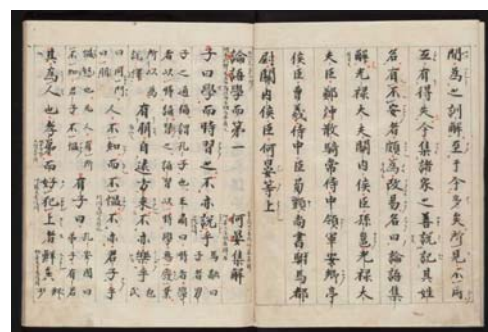 間為之訓解至于今多矣所見不同
互有得失今集諸家之善說記其姓
名有不安者頗為改易名曰論語集
解光祿大夫關內侯臣孫邕光祿大
夫臣鄭沖散騎常侍中領軍安鄉亭
侯臣曹羲侍中臣荀顗尚書駙馬都
尉關內侯臣何晏等上
論語學而第一 何晏集解
子曰學而時習之不亦說乎 馬融曰子者男
子之通稱謂孔子也王肅曰時者學
者以時誦習之誦習以時學無廢業
所以為說懌 有朋自遠方來不亦樂乎 苞
曰同門曰朋 人不知而不慍不亦君子乎
慍怒也凡人有所不知君子不慍 有子曰 孔安國曰弟子有若
其為人也孝第而好犯上者鮮矣